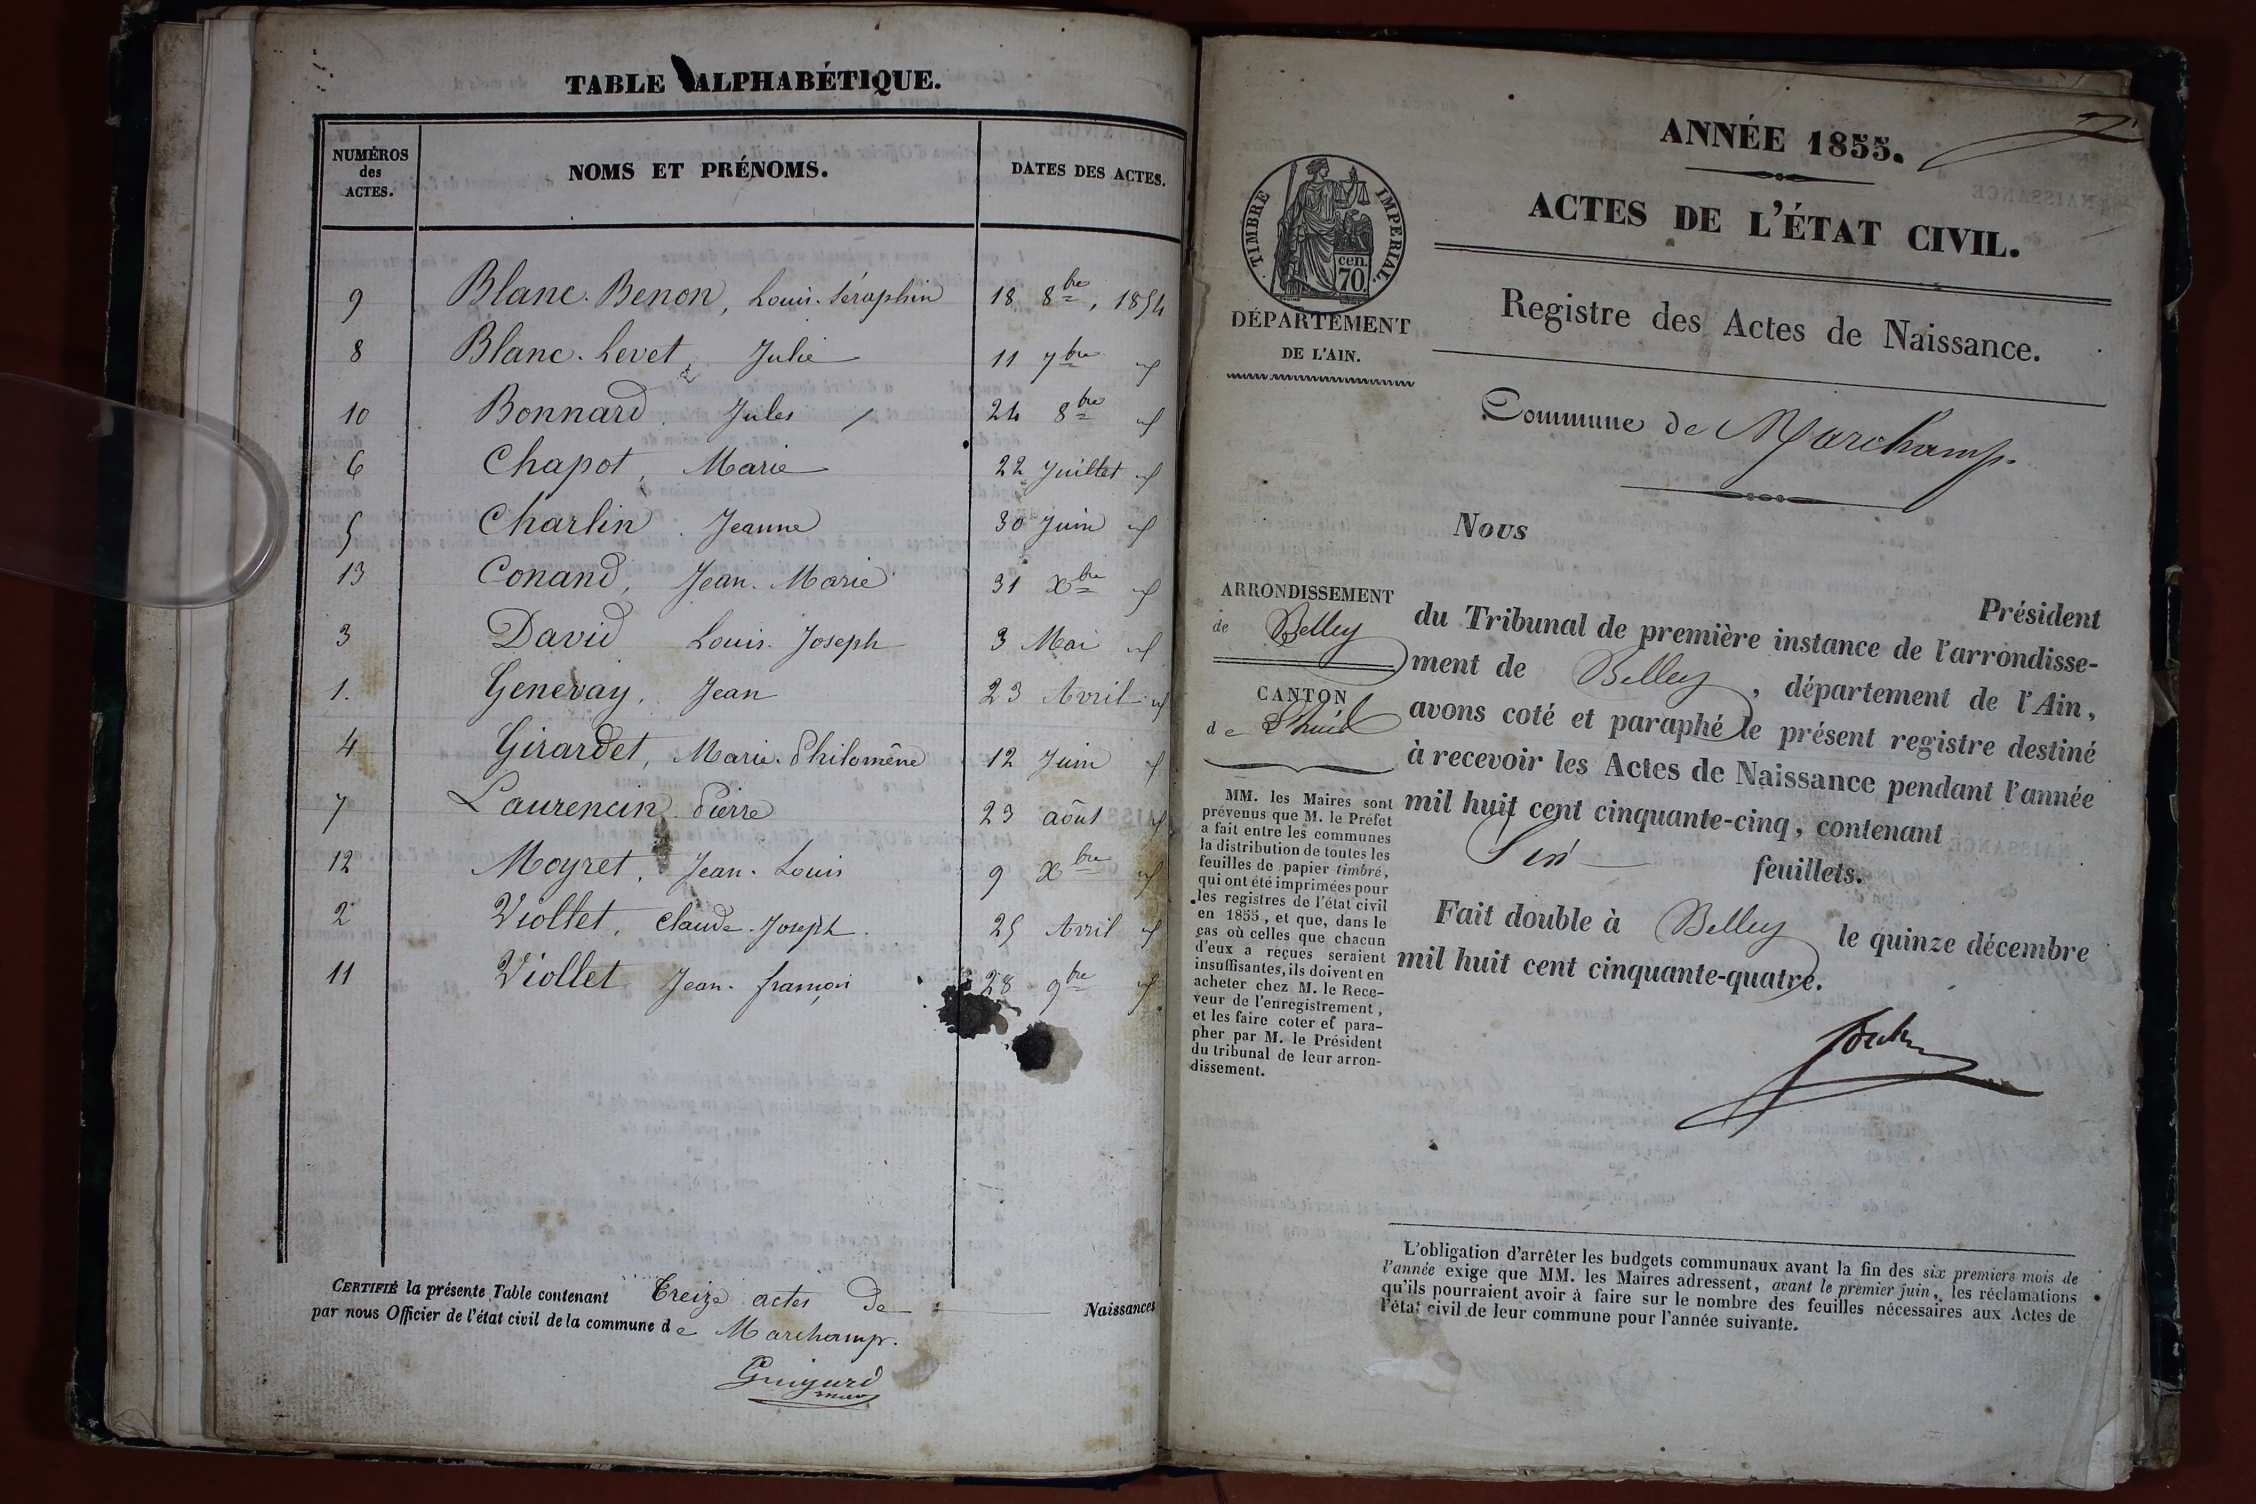 TABLE ALPHABÉTIQUE.
NUMÉROS des ACTES. NOMS ET PRÉNOMS. DATES DES ACTES.
9 Blanc-Benon, Louis-Séraphin 18 8bre, 1854
8 Blanc-Levet, Julie 11 7bre
10 Bonnard Jules 24 8bre
6 Chapot, Marie 22 Juillet
5 Charlin Jeanne 30 Juin
13 Conand, Jean-Marie 31 Xbre
3 David Louis-Joseph 3 Mai
1. Genevay, Jean 23 Avril
4 Girardet, Marie-Philomêne 12 Juin
7 Laurencin Pierre 23 août
12 Moyret, Jean-Louis 9 Xbre
2 Viollet, Claude-Joseph 25 Avril
11 Viollet Jean-françois 28 9bre
CERTIFIÉ la présente Table contenant Treize actes de Naissances
par nous Officier de l'état civil de la commune de Marchamp.
Guigard
maire
ANNÉE 1855.
ACTES DE L'ÉTAT CIVIL.
TIMBRE IMPERIAL.
cen.
70.
DÉPARTEMENT
DE L'AIN.
Registre des Actes de Naissance.
Commune de Marchamp.
Nous
Président
ARRONDISSEMENT
de Belley
CANTON
de Lhuis
du Tribunal de première instance de l'arrondisse-
ment de Belley, département de l'Ain,
avons coté et paraphé le présent registre destiné
à recevoir les Actes de Naissance pendant l'année
mil huit cent cinquante-cinq, contenant
Six feuillets.
Fait double à Belley le quinze décembre
mil huit cent cinquante-quatre.
MM. les Maires sont
prévenus que M. le Préfet
a fait entre les communes
la distribution de toutes les
feuilles de papier timbré,
qui ont été imprimées pour
les registres de l'état civil
en 1855, et que, dans le
cas où celles que chacun
d'eux a reçues seraient
insuffisantes, ils doivent en
acheter chez M. le Rece-
veur de l'enregistrement,
et les faire coter et para-
pher par M. le Président
du tribunal de leur arron-
dissement.
L'obligation d'arrêter les budgets communaux avant la fin des six premiers mois de
l'année exige que MM. les Maires adressent, avant le premier juin, les réclamations
qu'ils pourraient avoir à faire sur le nombre des feuilles nécessaires aux Actes de
l'état civil de leur commune pour l'année suivante.